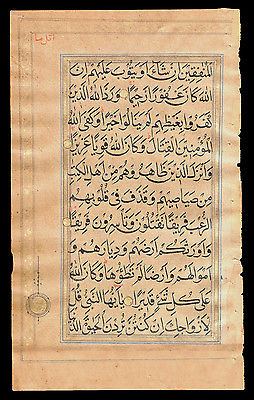 المنفقين ان شاء او يتوب عليهم ان
الله كان غفورا رحيما ورد الله الذين
كفروا بغيظهم لم ينالوا خيرا وكفى الله
المؤمنين القتال وكان الله قويا عزيزا
وانزل الذين ظاهروهم من اهل الكتب
من صياصيهم وقذف في قلوبهم
الرعب فريقا تقتلون وتأسرون فريقا
واورثكم ارضهم وديارهم و
اموالهم وارضا لم تطؤها وكان الله
على كل شئ قديرا يايها النبي قل
لازواجك ان كنتن تردن الحيوة الدنيا